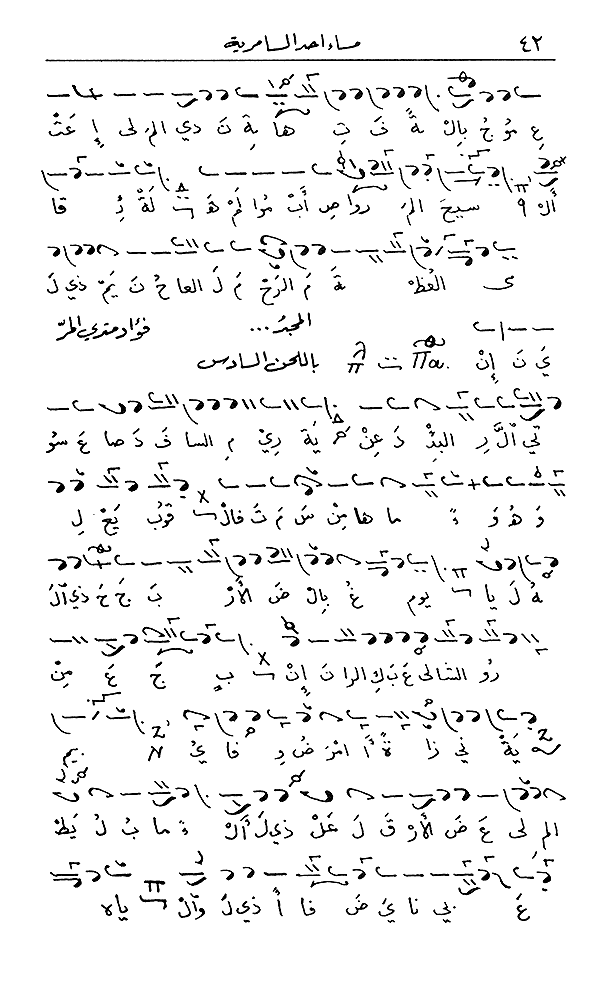 ٤٢ مساء احد السامرية
عِ مُوْ جُ بِالْ ةً فَ تِ هَا ةِ نَ دي الم لى إِ عَتْ
أَلْ سيحَ الم رَوا صِ أَبْ مُوا لَمْ هَ لَةْ ئِ قا
ى العُظْ ةَ مَ الرَحْ مَ لَ العا حُ نَ يَمْ ذي لَ
المجدُ ... فؤاد متري المرّ
يَ نَ إِنْ باللحن السادس
تي اَلْ رِ البِئْ دَ عِنْ يَةَ رِيْ مِ السا فَ دَ صا عَ سُو
وَ هُوَ ءً ما ها مِنْ سَ مَ تَ فالْ قوبُ يَعْ لِ
هُ لَ يا يوم غُ بِالْ ضَ الأَرْ بَ جَ حَ ذي اَلْ
رُو الشا لى عَ بَ كِ الرا نَ إِنْ بٍ جَ عَ مِنْ
يَةْ ني زا ةً أَ امْرَ ضُ وِ فا يُ
الم لى عَ ضَ الأَرْ قَ لَ عَلْ ذي لَ أَلْ ءً ما بُ لُ يَطْ
غَ بي نا يَ ضَ فا أَ ذي لَ وَالْ ياه